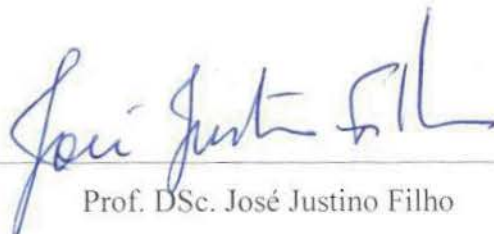 José Justino Filho
Prof. DSc. José Justino Filho